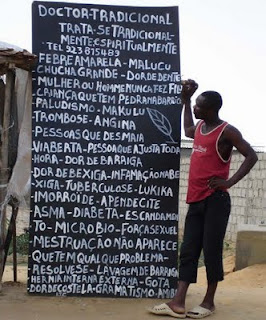 DOCTOR-TRADICIONAL
TRATA-SE TRADICIONAL-
MENTE, ESPIRITUALMENTE
TEL 923815489
FEBRE AMARELA-MALUCU
CHUCHA GRANDE-DOR DE DENTE
MULHER OU HOMEM NUNCA FEZ FIL
CRIANÇA QUE TEM PEDRA NA BARRIG
PALUDISMO-MAKULU
TROMBOSE-ANGINA
PESSOAS QUE DESMAIA
VIA BERTA-PESSOA QUE AJUSTA TODA
HORA-DOR DE BARRIGA
DOR DE BEXIGA-INFAMAÇÃO NA BE
XIGA-TUBERCULOSE-LUKIKA
MORROÍDE-APENDECITE
ASMA-DIABETA-ESCANDAMEN
TO-MICROBIO-FORÇA SEXUAL
MESTRUAÇÃO NÃO APARECE
QUE TEM QUALQUE PROBLEMA-
RESOLVESE-LAVAGEM DE BARRIGA
HERNIA INTERNA EXTERNA-GOTA
DOR DE COSTELA-GRAMATISMO-AMIBA